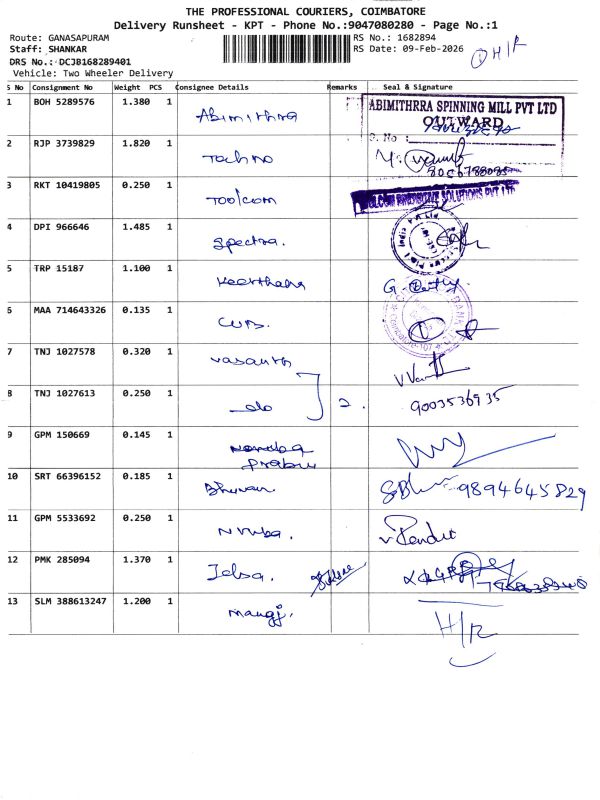 THE PROFESSIONAL COURIERS, COIMBATORE
Delivery Runsheet - KPT - Phone No.:9047080280 - Page No.:1
Route: GANASAPURAM
RS No.: 1682894
Staff: SHANKAR
RS Date: 09-Feb-2026
DRS No.: DCJB168289401
Vehicle: Two Wheeler Delivery
① H/R
S No Consignment No Weight PCS Consignee Details Remarks Seal & Signature
1 BOH 5289576 1.380 1 Abimithra ABIMITHRRA SPINNING MILL PVT LTD
OUTWARD
S. No :
2 RJP 3739829 1.820 1 Techno
3 RKT 10419805 0.250 1 Toolcom SOLUTIONS PVT LTD
4 DPI 966646 1.485 1 Spectra.
5 TRP 15187 1.100 1 Keerthana G.
6 MAA 714643326 0.135 1 CUB.
7 TNJ 1027578 0.320 1 Vasanth
8 TNJ 1027613 0.250 1 do 2. 9003536935
9 GPM 150669 0.145 1
Prabu
10 SRT 66396152 0.185 1 Bhuvan 9894645829
11 GPM 5533692 0.250 1
12 PMK 285094 1.370 1
13 SLM 388613247 1.200 1 H/R